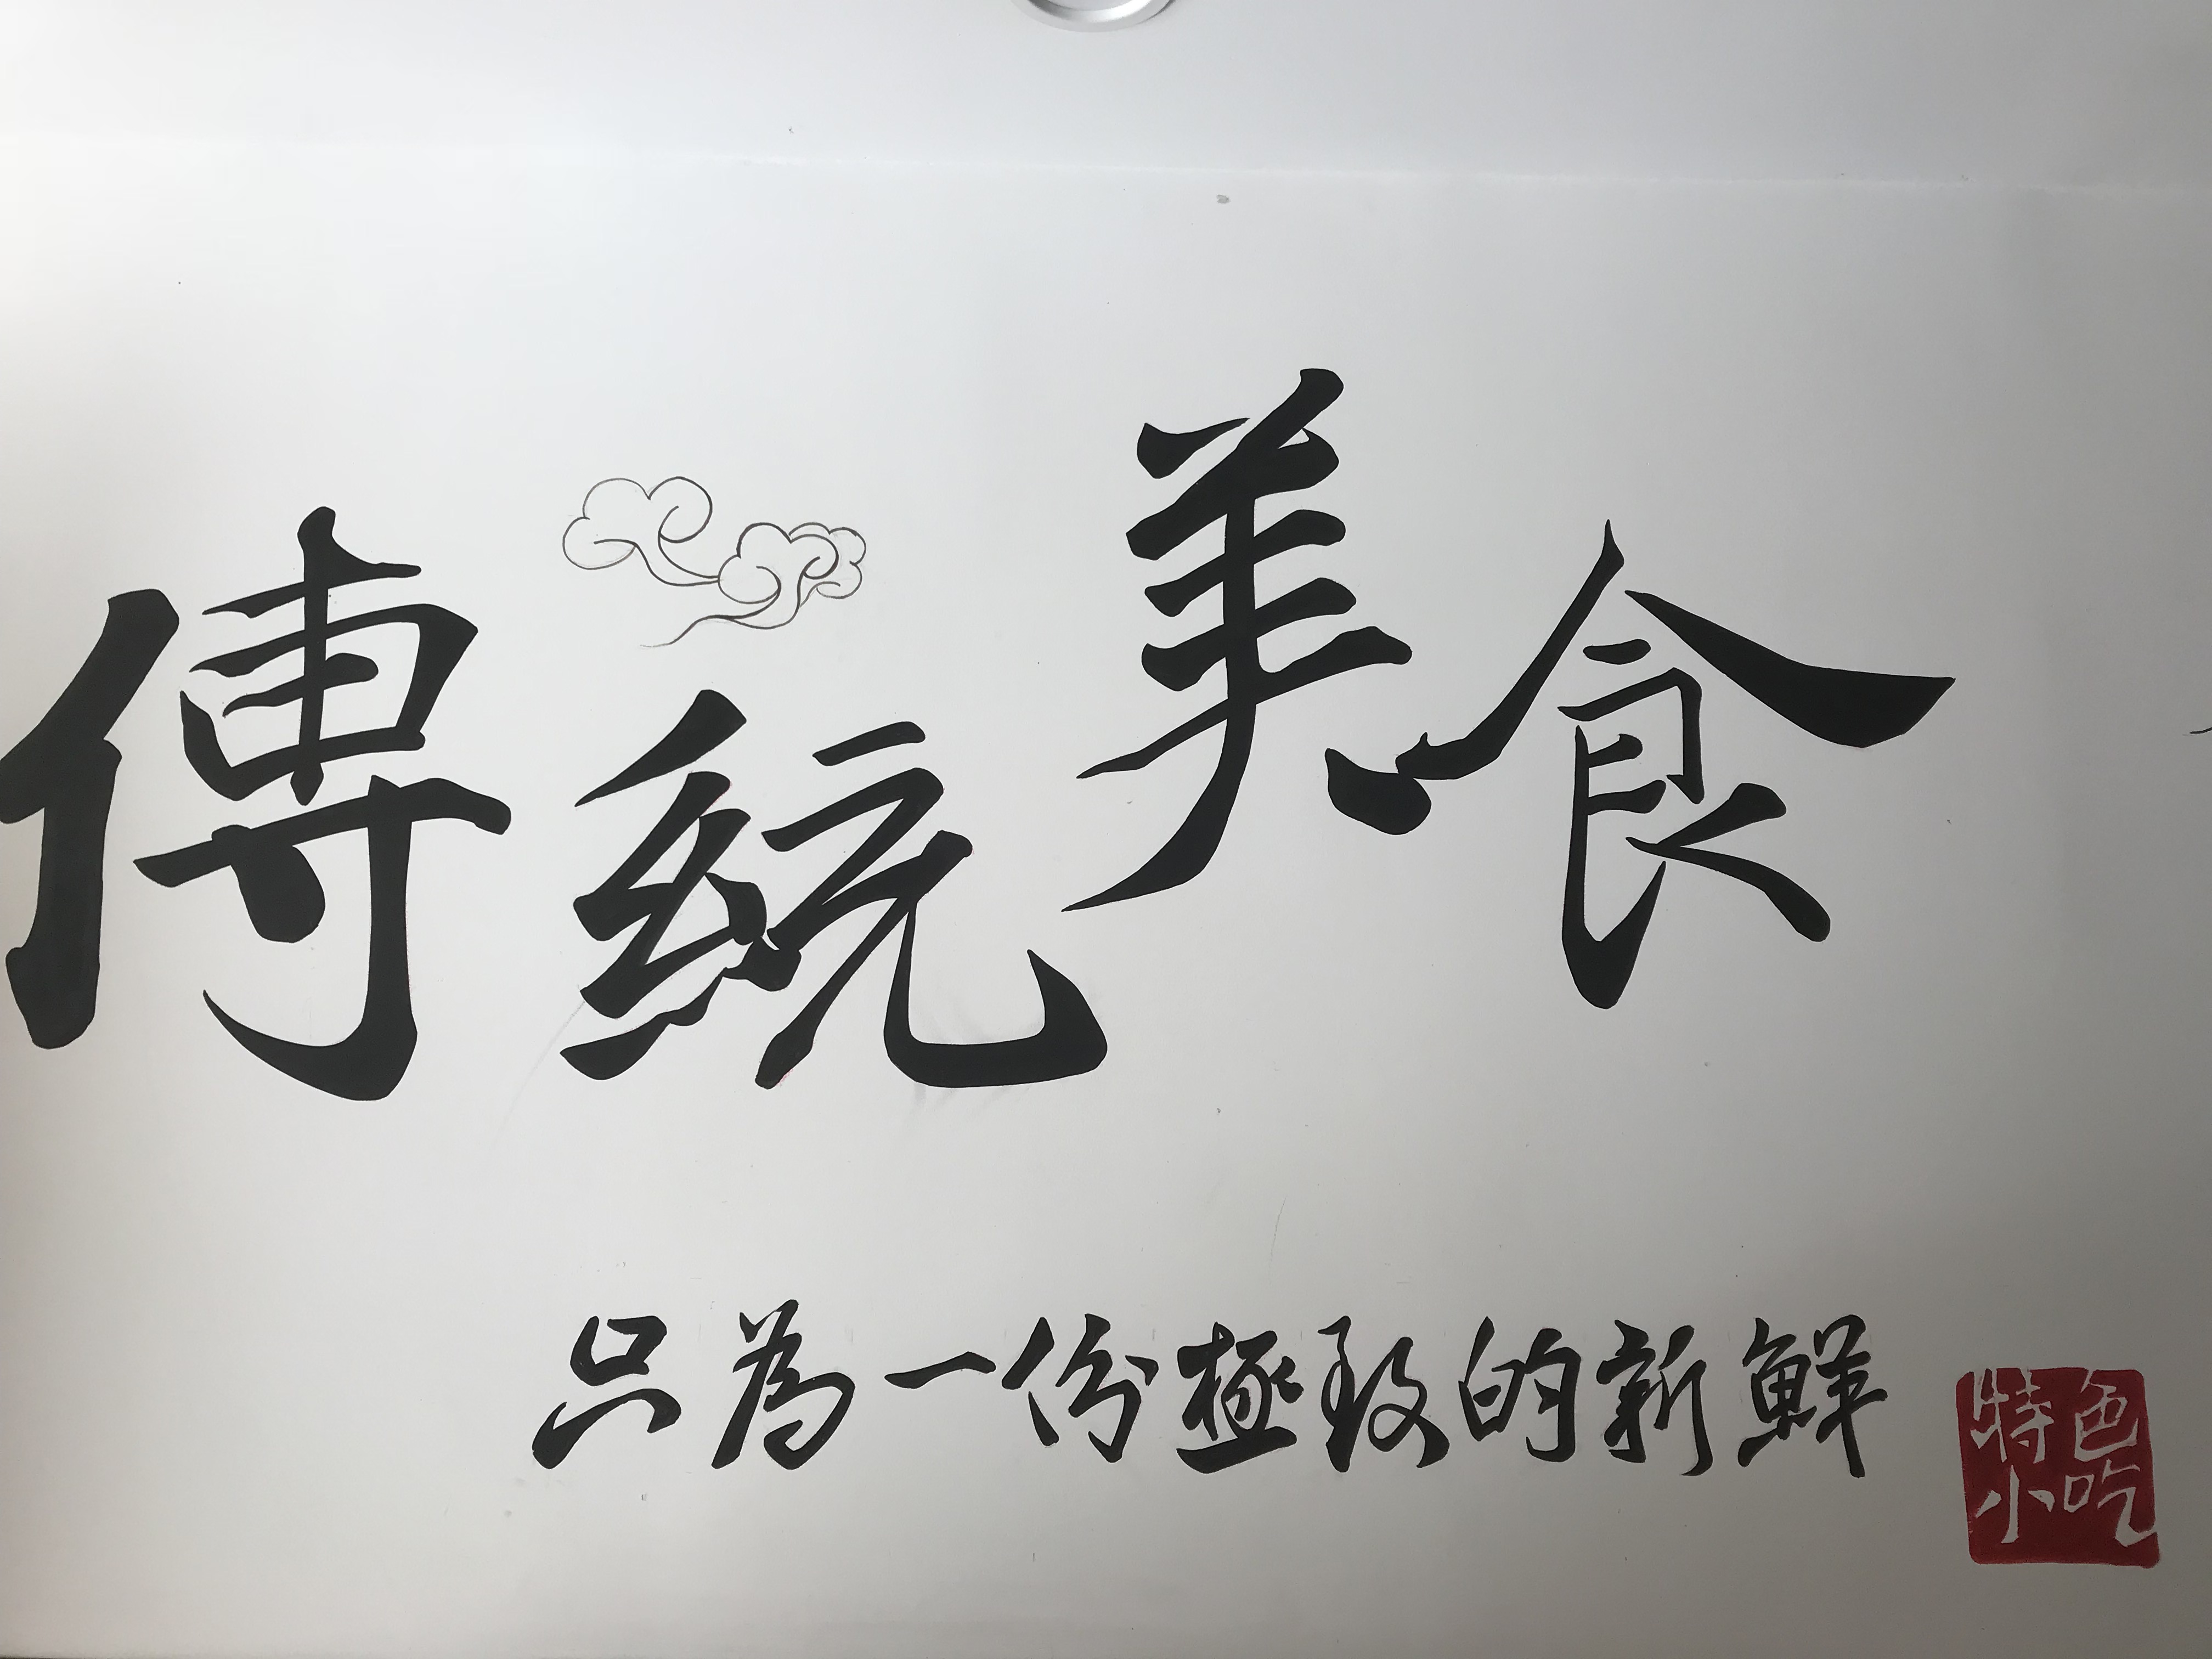 傳統美食
只為一份極致的新鮮
特色
小吃